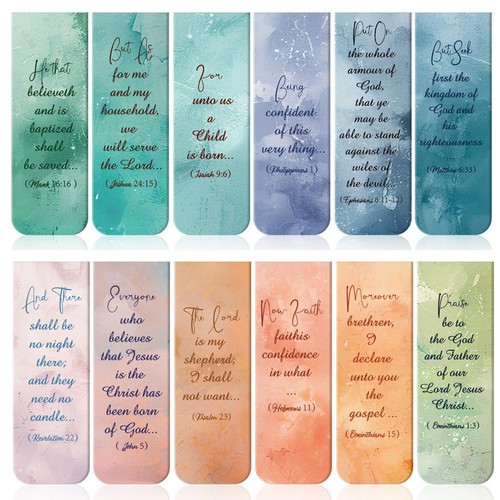 He that
believeth
and is
baptized
shall
be saved...
(Mark 16:16)
But As
for me
and my
household,
we
will serve
the Lord...
(Joshua 24:15)
For
unto us
a
Child
is born...
(Isaiah 9:6)
Being
confident
of this
very thing...
(Philippians 1)
Put On
the whole
armour of
God,
that ye
may be
able to stand
against the
wiles of
the devil...
(Ephesians 6:11-12)
But Seek
first the
kingdom of
God and
his
righteousness
...
(Matthew 6:33)
And There
shall be
no night
there;
and they
need no
candle...
(Revelation 22)
Everyone
who
believes
that Jesus
is the
Christ has
been born
of God...
(John 5)
The Lord
is my
shepherd;
I shall
not want...
(Psalm 23)
Now Faith
faithis
confidence
in what
...
(Hebrews 11)
Moreover
brethren,
I
declare
unto you
the
gospel ...
(Corinthians 15)
Praise
be to
the God
and Father
of our
Lord Jesus
Christ...
(Corinthians 1:3)